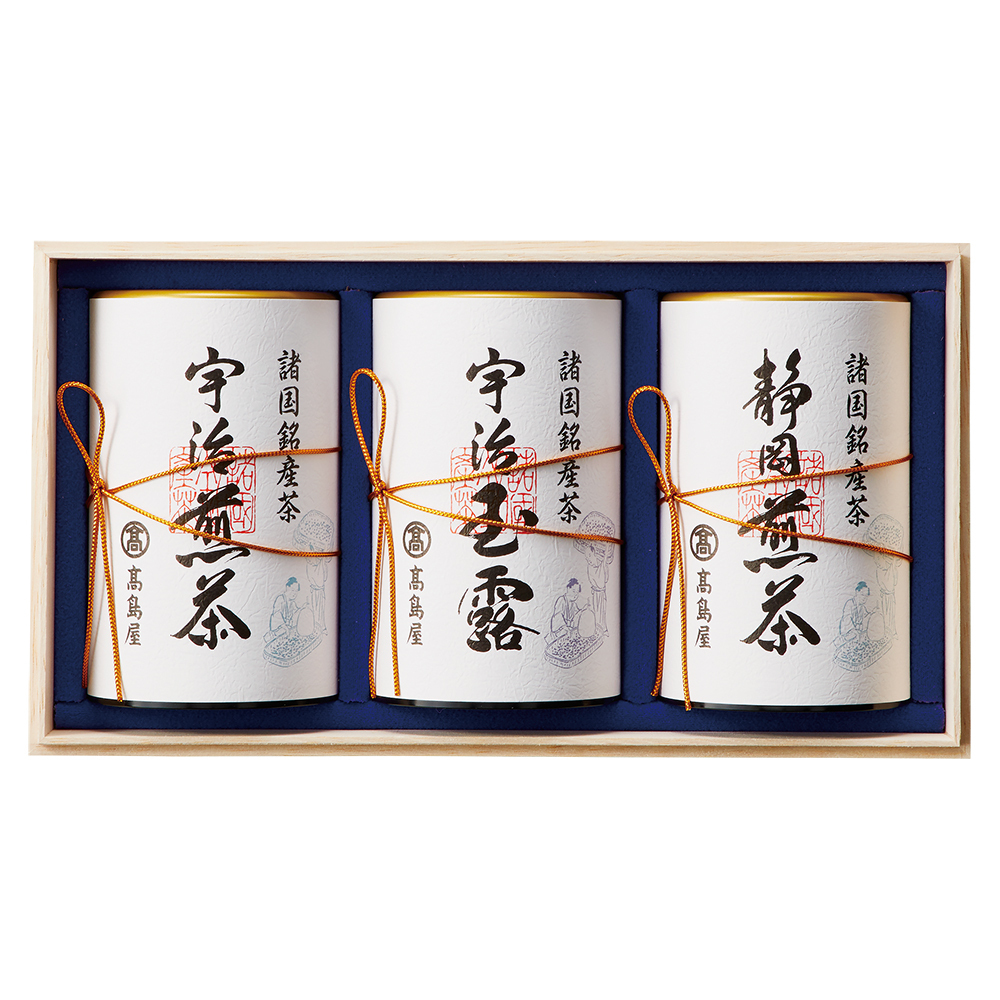 諸国銘産茶
宇治煎茶
髙
髙島屋
諸国銘産茶
宇治玉露
髙
髙島屋
諸国銘産茶
静岡煎茶
髙
髙島屋